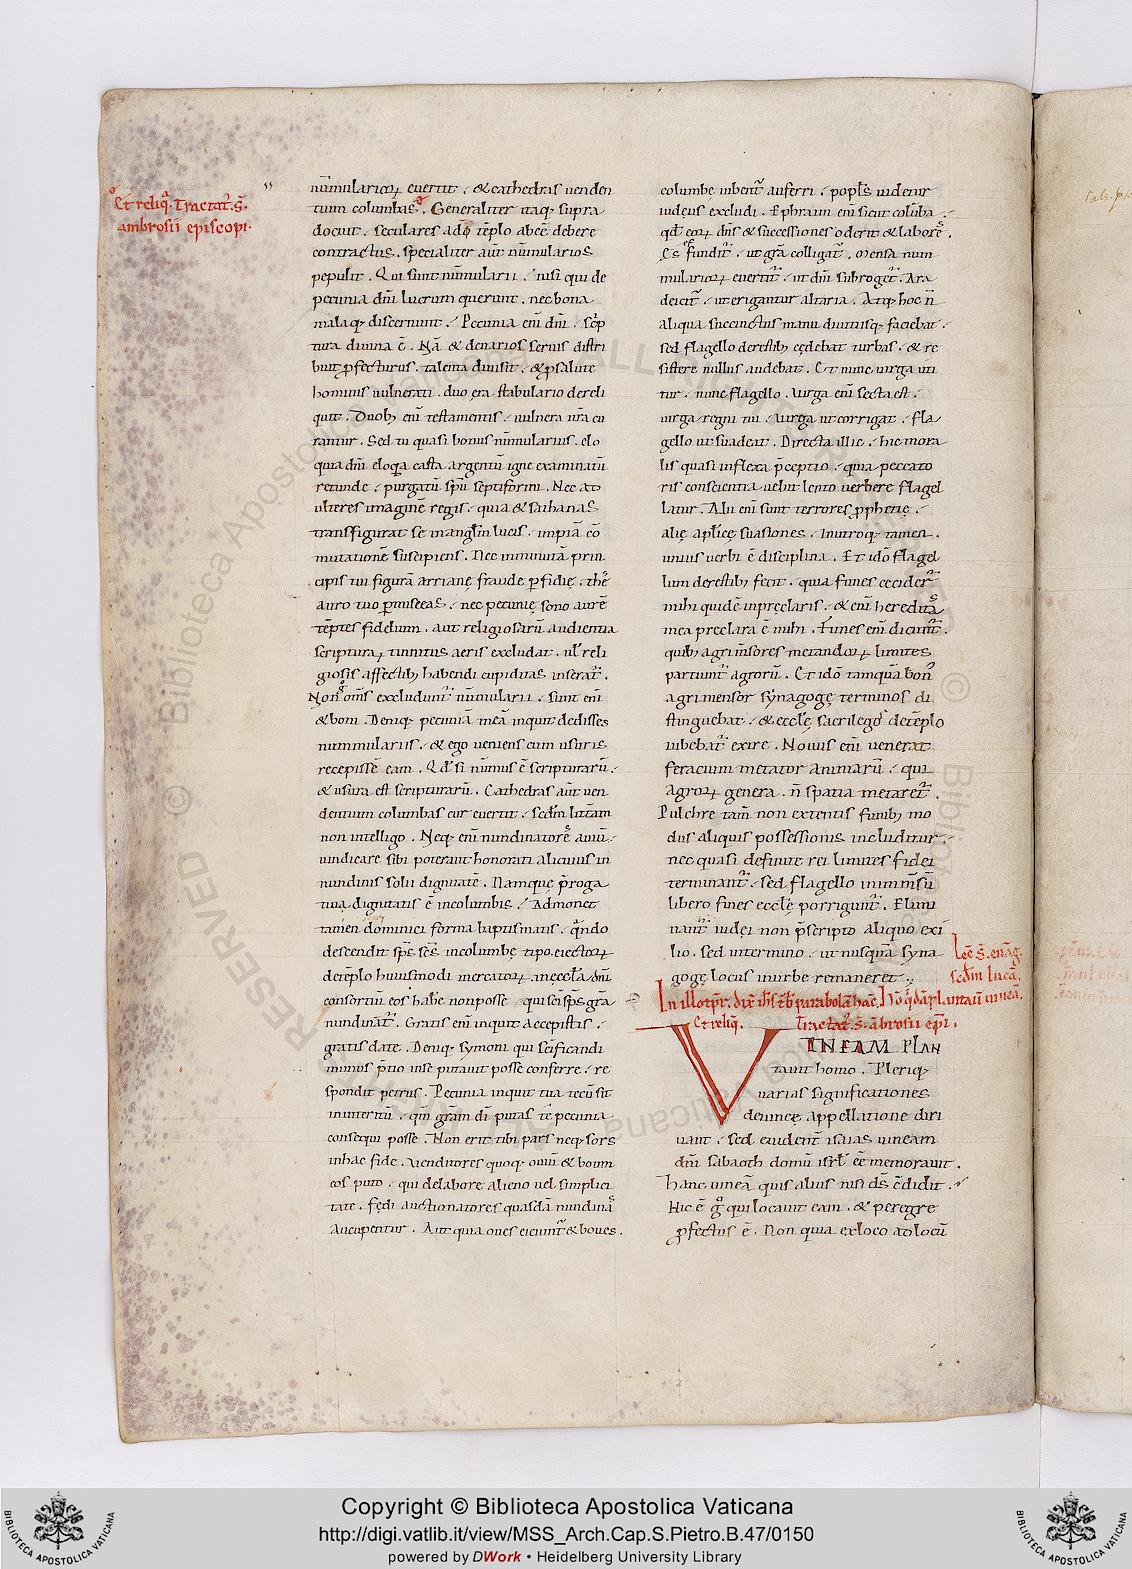 Et reliq̄. Tractat᷒. S̄.
ambrosii episcopi.
nūmularioꝝ euertit. & cathedras uenden
tium columbas. Generaliter itaq; supra
docuit. seculares a dī tēplo abeē debere
contractus. specialiter aūt nūmularios
pepulit. Qui sunt nūmularii. nisi qui de
pecunia dn̄i lucrum querunt. nec bona
malaq; discernunt. Pecunia enī dn̄i. sc̄p
tura diuina ē. Nā & denarios seruis distri
buit ꝓfecturus. talenta diuisit. & ꝓ salute
hominis uulnerati. duo era stabulario dereli
quit. Duob; enī testamentis. uulnera n̄ra cu
rantur. Sed tu quasi bonus nūmularius. elo
quia dn̄i eloqa casta argentū igne examinatū
retunde. purgatū sp̄u septiformi. Nec ad
ulteres imaginē regis. quia & sathanas
transfigurat se in angl̄m lucis. impiā cō
mutationē suscipiens. Nec inminutā prin
cipis tui figurā arrianę fraude ꝑfidię. the
auro tuo ꝑmisceas. nec pecunię sono aurē
tēptes fidelium. aut religiosarū audientia
scripturaꝝ tinnitus aeris excludat. ul̄ reli
giosis affectib; habendi cupiditas inserat᷒.
Non om̄s excludunt᷒ nūmularii. sunt enī
& boni. Deniq; pecuniā meā inquit dedisses
nummulariis. & ego ueniens cum usuris
recepissē eam. Qd̄ si nūmus ē scripturarū.
& usura est scripturarū. Cathedras aūt uen
dentium columbas cur euertit. secdm litt̄am
non intelligo. Neq; enī nundinatores auiū
uindicare sibi poterant honorati alicuius in
nundinis solii dignitatē. Namque p̄roga
tiua dignitatis ē in columbis. Admonet
tamen dominici forma baptismatis. qn̄do
descendit sp̄s sc̄s in columbę tipo. eiectoꝝ
de tēplo huiusmodi mercatoꝝ in ęccl̄a dn̄i
consortiū eos habe non posse. qui sc̄i sp̄s gr̄a
nundinant᷒. Gratis enī inquit accepistis.
gratis date. Deniq; symoni qui sc̄ificandi
munus p̄tio inse putauit posse conferre. re
spondit petrus. Pecunia inquit tua tecū sit
in interitū. qm̄ gr̄am dī putas te pecunia
consequi posse. Non erit tibi pars neq; sors
in hac fide. Venditores quoq; ouiū & boum
eos puto. qui de labore alieno uel simplici
tate. fędi auctionatores quasdā nundinas
aucupentur. Aut quia oues eiciunt᷒ & boues.
columbe iubent᷒ auferri. popl̄s uidetur
iudeus excludi. Ephraim enī sicut colūba.
qd̄ eoꝝ dn̄s & successiones oderit & labores.
Es effundit᷒. ut gr̄a colligat᷒. Mensa num
mularioꝝ euertit᷒. ut dn̄i subroget᷒. Ara
deicit᷒. ut erigantur altaria. Atq; hoc n̄
aliqua succinctus manu diuitiisq; faciebat.
sed flagello de restib; cędebat turbas. & re
sistere nullus audebat. Et nunc uirga uti
tur. nunc flagello. Virga enī secta est.
uirga regni tui. Virga ut corrigat. fla
gello ut suadeat. Directa illic. hic mora
lis quasi inflexa p̄ceptio. quia peccato
ris conscientia uelut lento uerbere flagel
latur. Alii enī sunt terrores ꝓphetię.
alię apl̄icę suasiones. In utroq; tamen.
unius uerbi ē disciplina. Et idō flagel
lum de restib; fecit. quia funes cecider᷒
mihi quidē in pręclaris. & enī hereditas
mea preclara ē mihi. Funes enī dicunt᷒.
quib; agrim̄sores metandoꝝ limites
partiunt᷒ agrorū. Et idō tamquā bon᷒
agrimensor synagogę terminos di
stinguebat. & eccl̄ę sacrilegos de tēplo
iubebat exire. Nouus enī uenerat
feracium metator animarū. qui
agroꝝ genera. n̄ spatia metaret᷒.
Pulchre tam̄ non extentis funib; mo
dus aliquis possessionis includitur.
nec quasi definite rei limites fidei
terminant᷒. sed flagello in im̄msū
libero fines eccl̄ę porrigunt᷒. Elimi
nant᷒ iudęi non p̄scripto aliquo exi
lio. sed in termino. ut nusquā syna
gogę locus in urbe remaneret.
Lec̄ S. euāg.
secdm lucā.
In illo tp̄r. dix̄ ih̄s t̄b parabolā hāc. Ho qdā plantauit uineā.
Et reliq̄. Tractat᷒. S. ābrosii epi.
VINEAM PLAN
tauit homo. Pleriq;
uarias significationes
de uineę appellatione diri
uant. sed euident᷒ isaias uineam
dn̄i sabaoth domū isrl̄ eē memorauit.
Hanc uineā quis alius nisi ds̄ c̄didit.
Hic ē g̊ qui locauit eam. & peregre
ꝓfectus ē. Non quia ex loco ad locū
Copyright © Biblioteca Apostolica Vaticana
http://digi.vatlib.it/view/MSS_Arch.Cap.S.Pietro.B.47/0150
powered by DWork • Heidelberg University Library